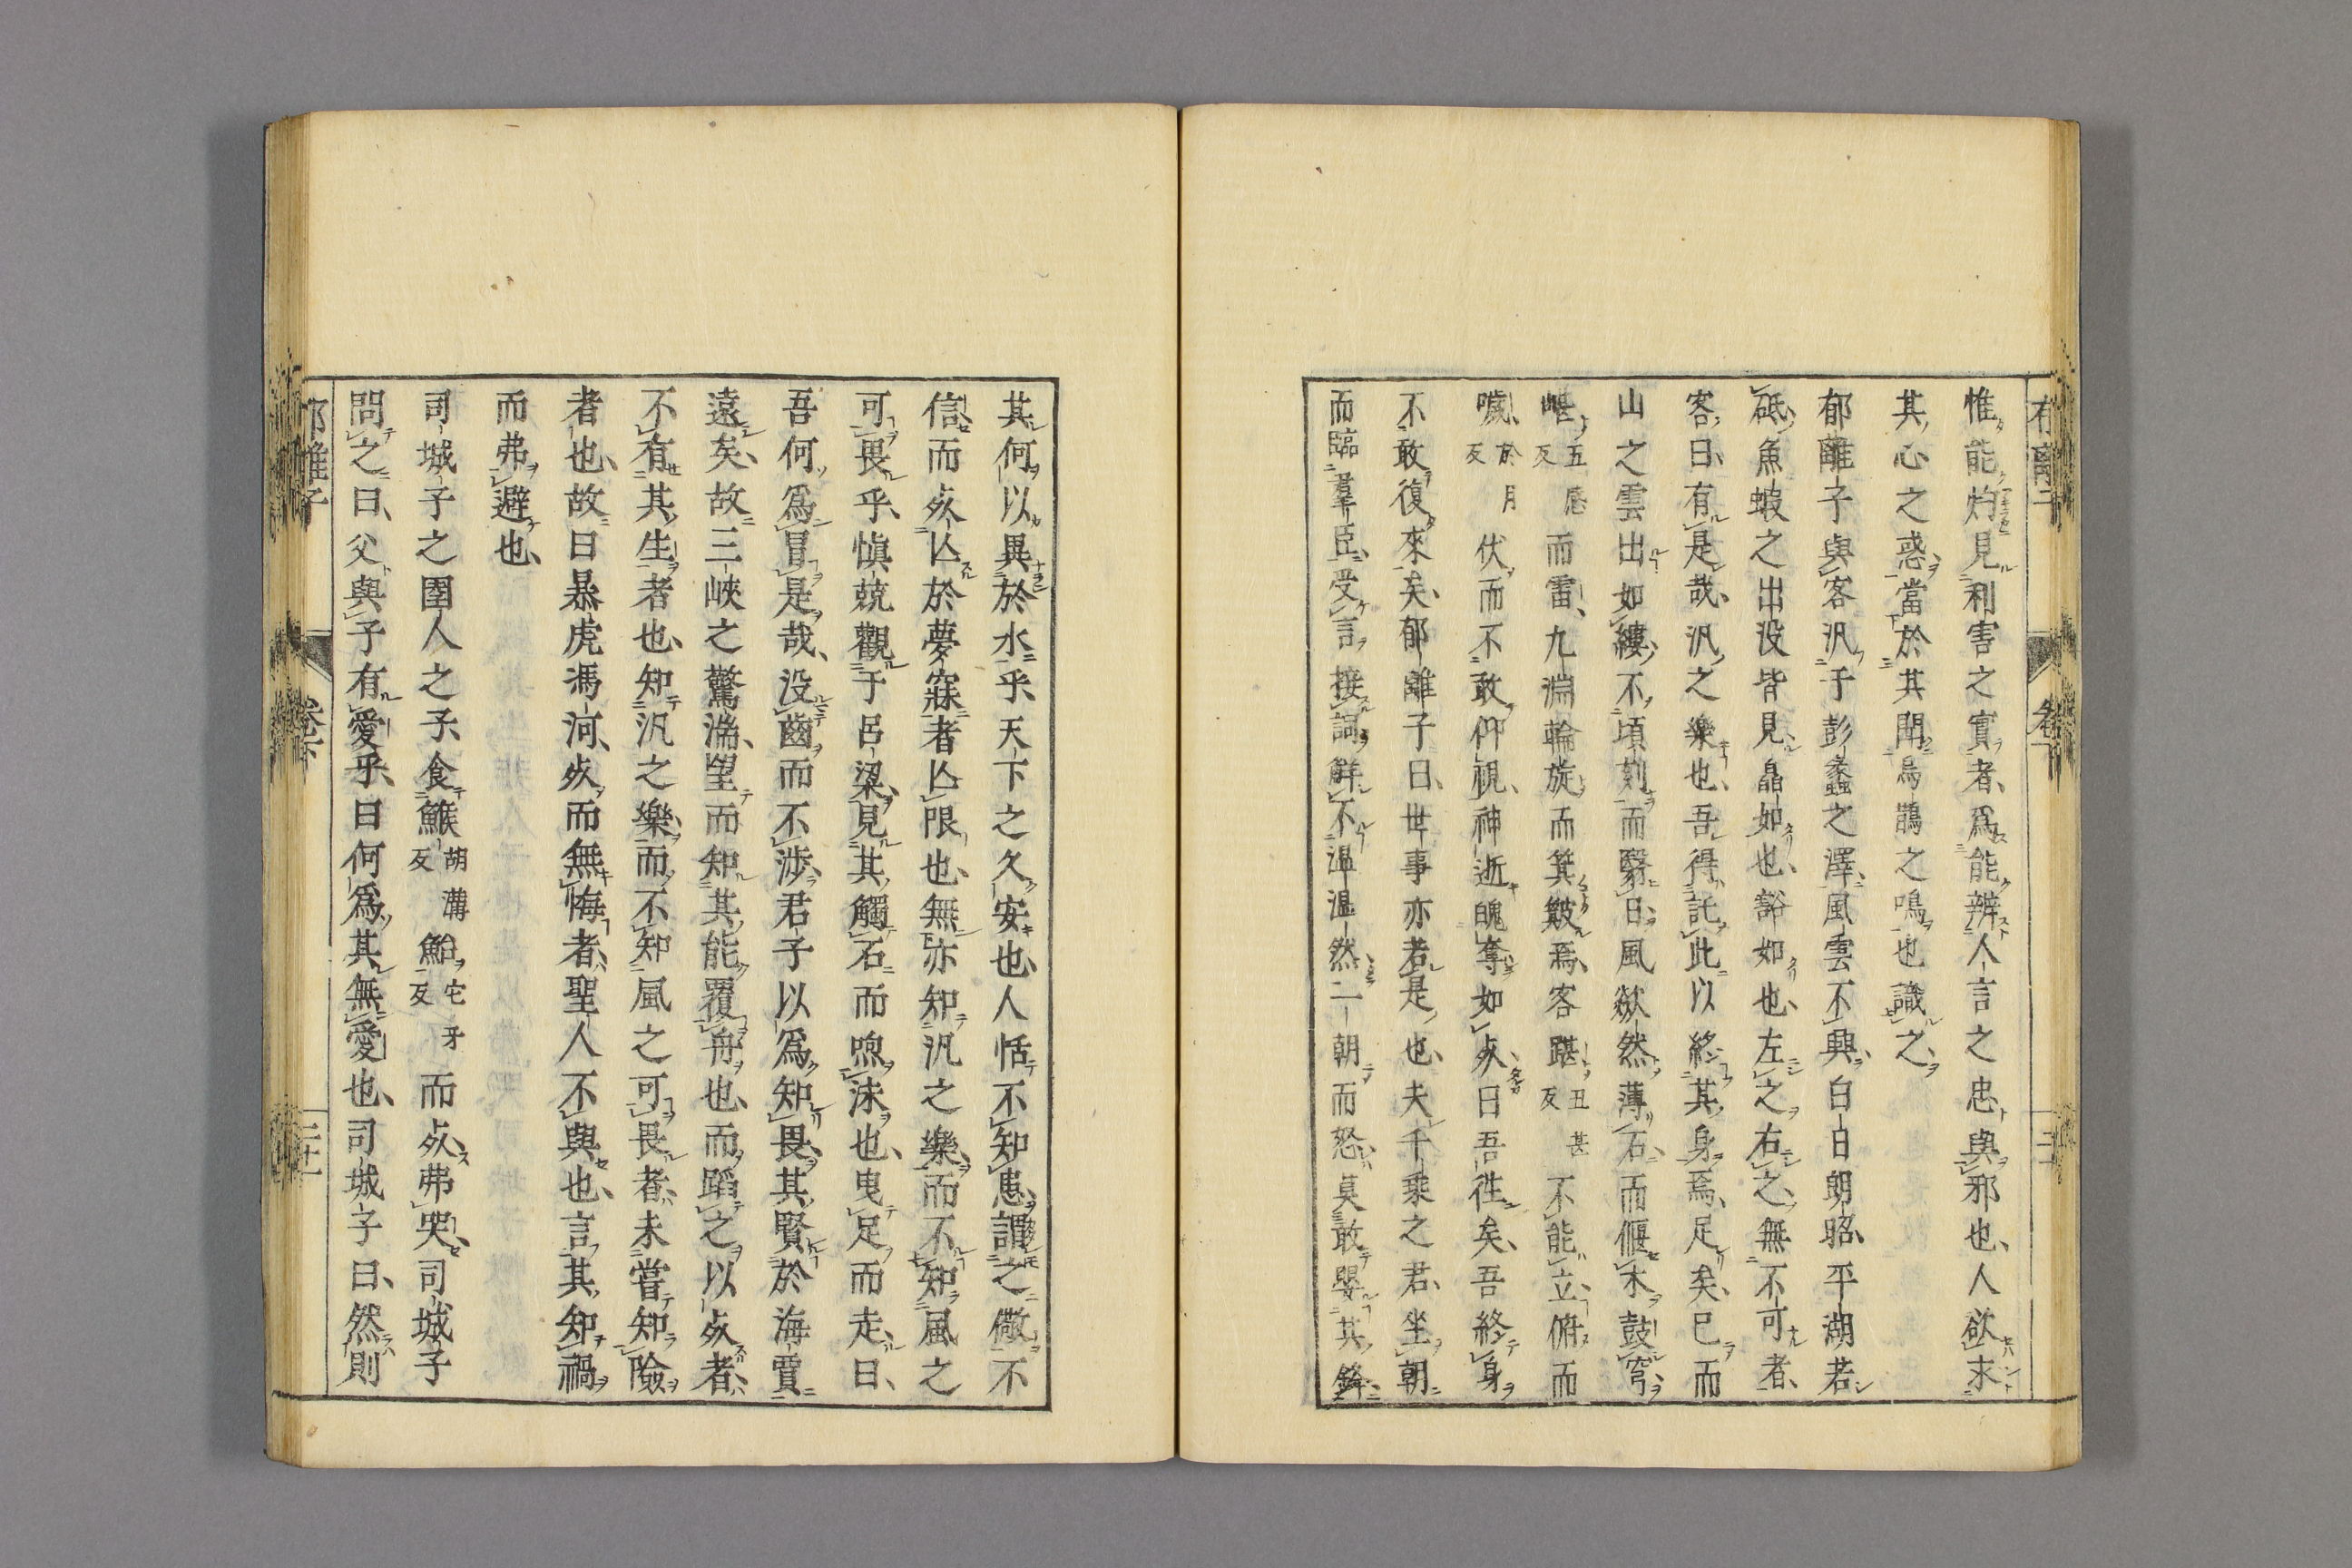 惟能灼見利害之實者、爲能辨人言之忠與邪也、人欲求
其心之惑、當於其聞烏鵲之鳴也識之、
郁離子與客汎于彭蠡之澤、風雲不興、白日朗昭、平湖若
砥、魚蝦之出没皆見皛如也、豁如也、左之右之、無不可者、
客曰、有是哉、汎之樂也、吾得託此以終其身焉、足矣、已而
山之雲出如縷、不頃刻而翳日、風欻然薄石而偃木、鼓穹
嵁五感反而雷、九淵輪旋而箕皺焉、客踸丑甚反不能立、俯而
噦、於月反伏而不敢仰視、神逝魄奪如死、曰吾徃矣、吾終身
不敢復來矣、郁離子曰、世事亦若是也、夫千乘之君、坐朝
而臨羣臣、受言接詞、鮮不温温然、一朝而怒、莫敢嬰其鋒、
其何以異於水乎、天下之久安也、人恬不知患、謂之儆不
信、而死亾於夢寐者亾限也、無亦知汎之樂、而不知風之
可畏乎、愼兢觀于呂梁、見其觸石而喣沫也、曳足而走、曰、
吾何爲冒是哉、没齒而不渉、君子以爲知畏、其賢於海賈
遠矣、故三峽之驚湍、望而知其能覆舟也、而蹈之以死者、
不有其生者也、知汎之樂、而不知風之可畏者、未嘗知險
者也、故曰暴虎馮河、死而無悔者、聖人不與也、言其知禍
而弗避也、
司城子之圉人之子、食鯸胡溝反鮐它牙反而死、弗哭、司城子
問之曰、父與子有愛乎、曰何爲其無愛也、司城子曰、然則
郁離子
卷下